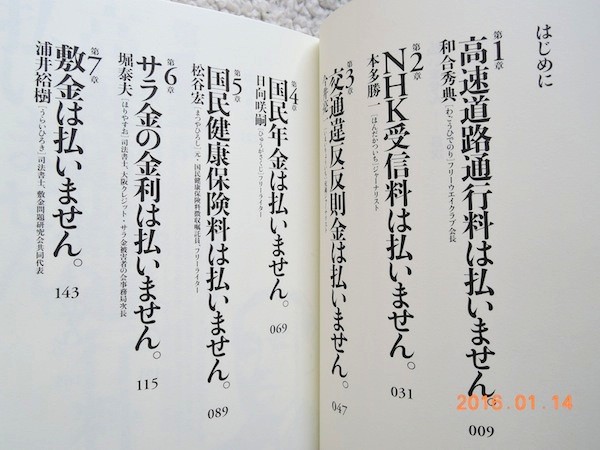 はじめに
第1章
高速道路通行料は払いません。
和合秀典[わごうひでのり]フリーウエイクラブ会長
009
第2章
NHK受信料は払いません。
本多勝一[ほんだかついち]ジャーナリスト
031
第3章
交通違反反則金は払いません。
047
第4章
国民年金は払いません。
日向咲嗣[ひゅうがさくじ]フリーライター
069
第5章
国民健康保険料は払いません。
松谷宏[まつやひろし]元・国民健康保険料徴収嘱託員、フリーライター
089
第6章
サラ金の金利は払いません。
堀泰夫[ほりやすお]司法書士、大阪クレジット・サラ金被害者の会事務局次長
115
第7章
敷金は払いません。
浦井裕樹[うらいひろき]司法書士、敷金問題研究会共同代表
143
2016.01.14